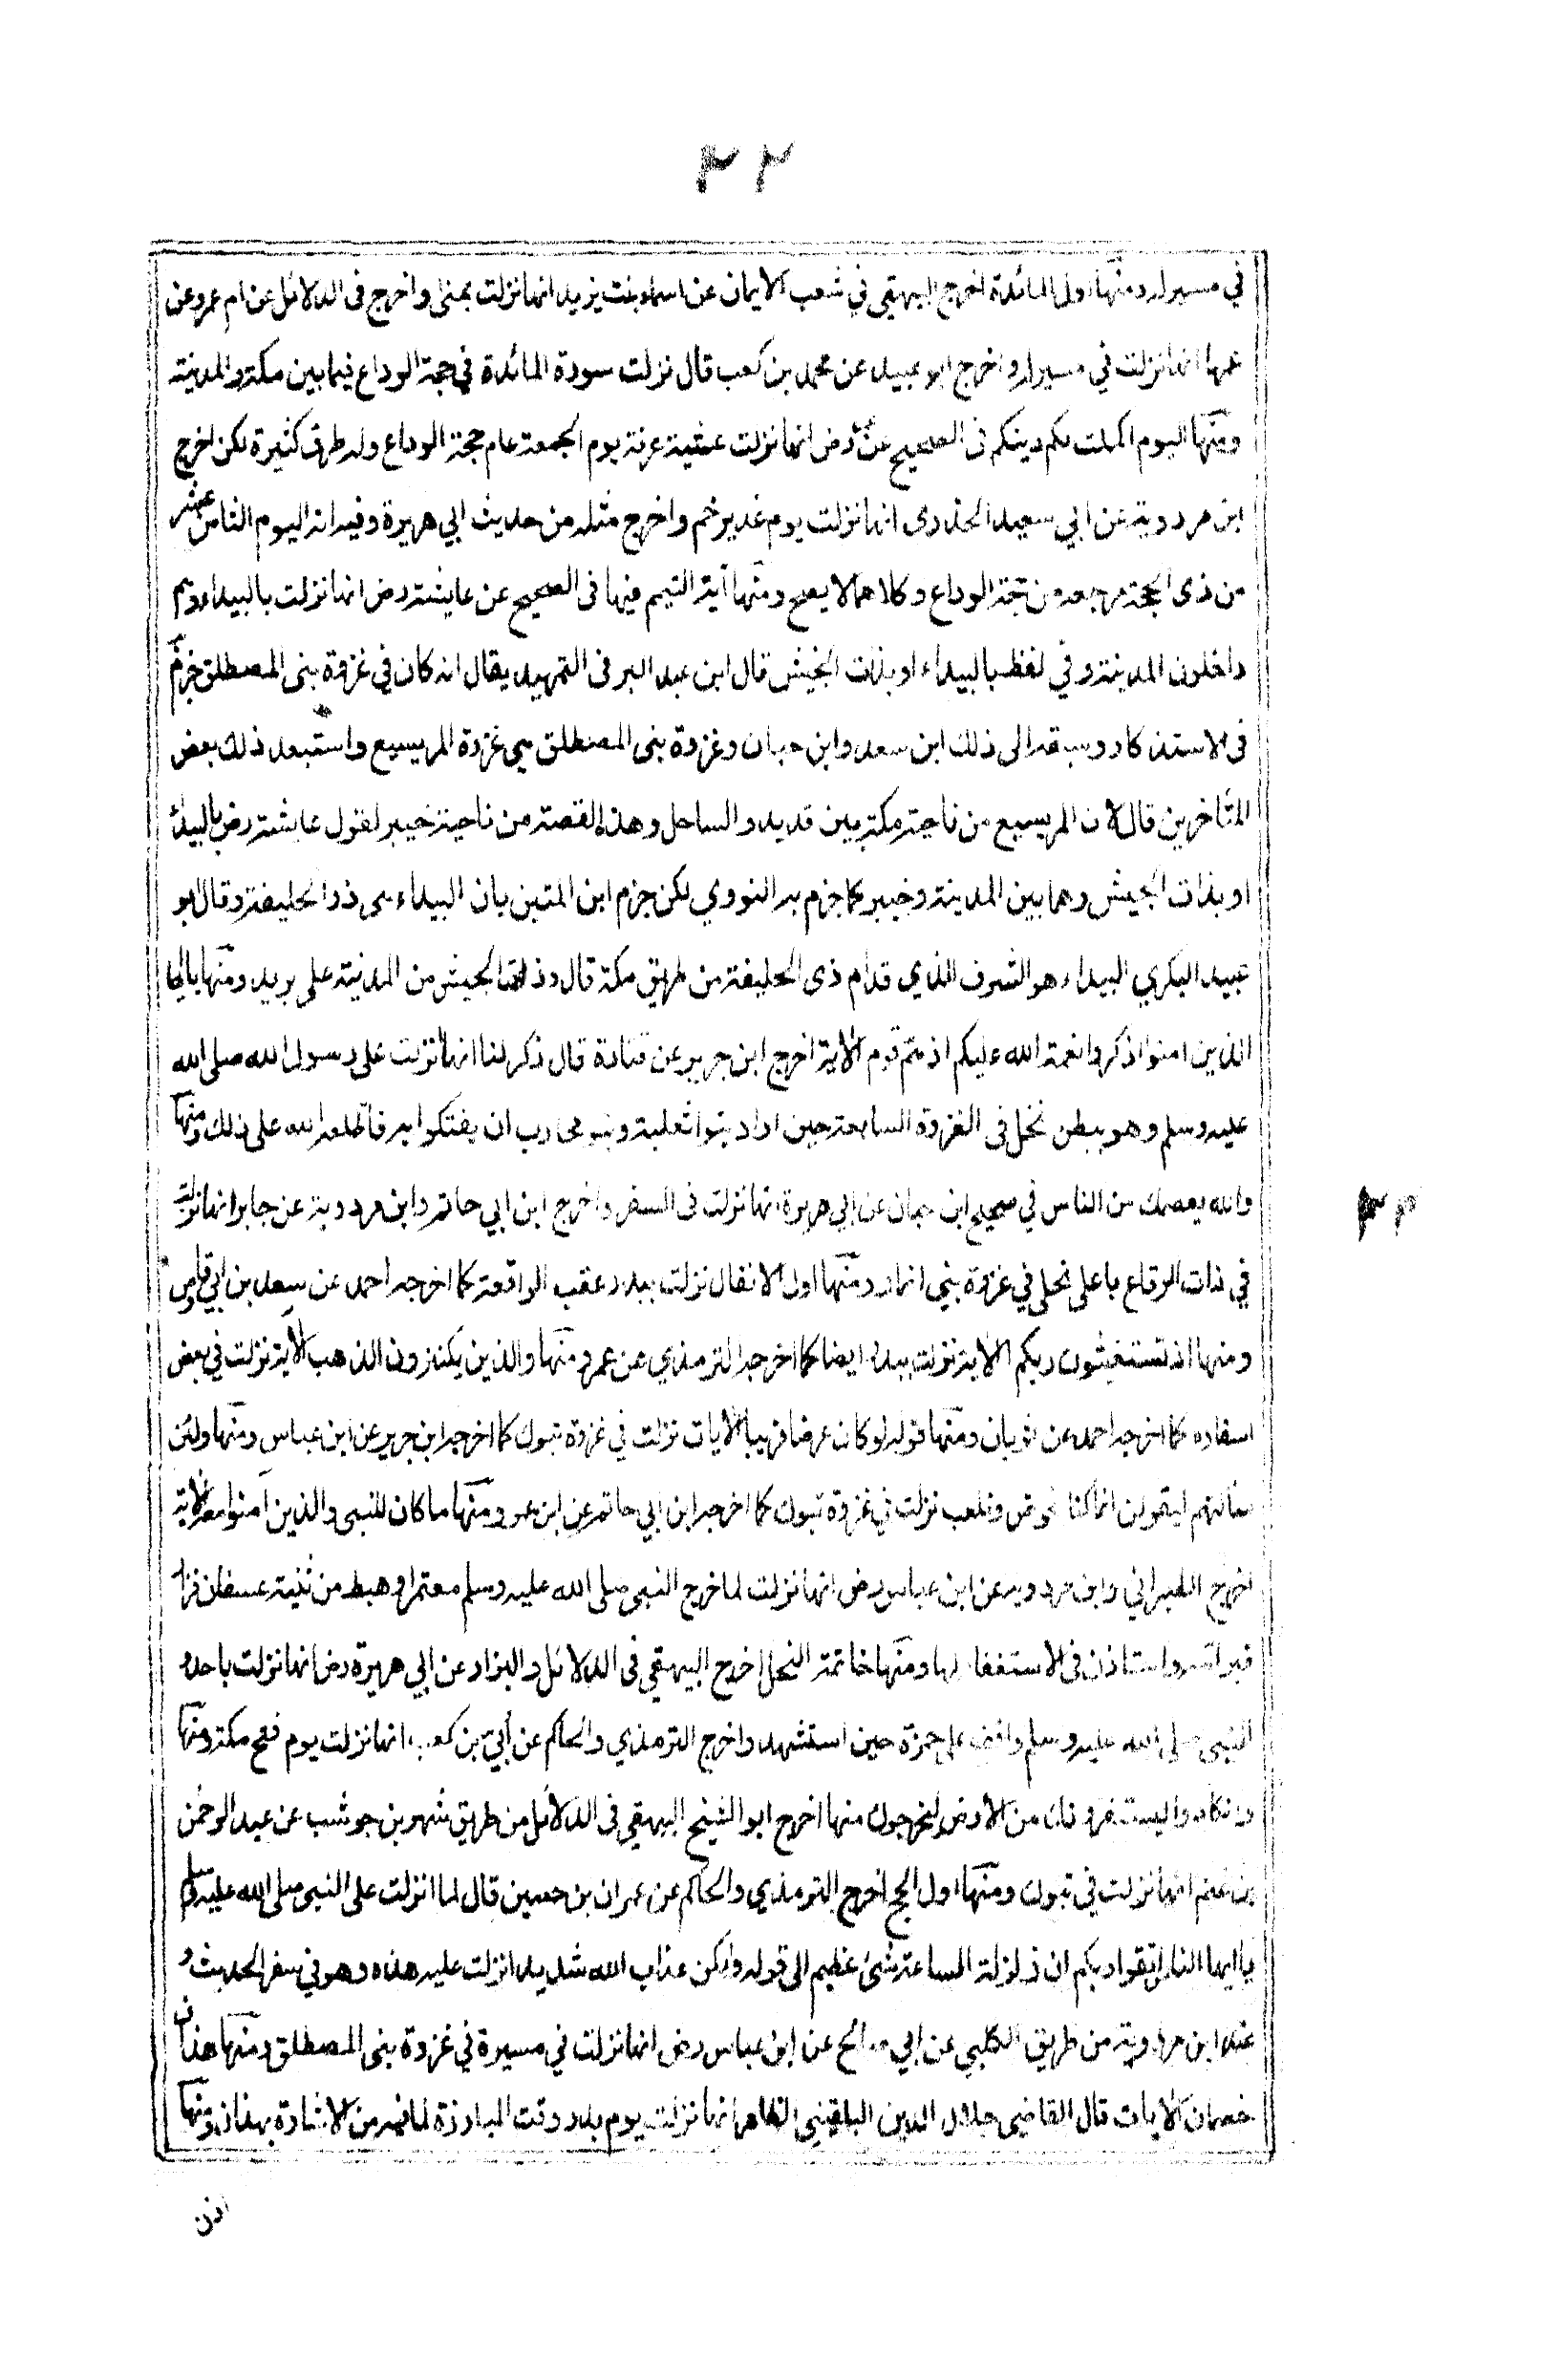 ٣٢
في مسير له ومنها اول المائدة اخرج البيهقي في شعب الايمان عن اسماء بنت يزيد انها نزلت بمنى واخرج في الدلائل عن ام عمرو عن
عمها انها نزلت في مسير له واخرج ابو عبيد عن محمد بن كعب قال نزلت سورة المائدة في حجة الوداع فيما بين مكة والمدينة
ومنها اليوم اكملت لكم دينكم في الصحيح عن عمر رض انها نزلت عشية عرفة يوم الجمعة عام حجة الوداع وله طرق كثيرة لكن اخرج
ابن مردوية عن ابي سعيد الخدرى انها نزلت يوم غدير خم واخرج مثله من حديث ابي هريرة وفيه انه اليوم الثامن عشر
من ذى الحجة مرجعه من حجة الوداع وكلاهما لا يصح ومنها آية التيمم فيها فى الصحيح عن عايشة رض انها نزلت بالبيداء وهم
داخلون المدينة وفي لفظ بالبيداء او بذات الجيش قال ابن عبد البر فى التمهيد يقال انه كان في غزوة بنى المصطلق جزم
فى الاستذكار وسبقه الى ذلك ابن سعد وابن حبان وغزوة بنى المصطلق هي غزوة المريسيع واستبعد ذلك بعض
المتأخرين قال لان المريسيع من ناحية مكة بين قديد والساحل وهذه القصة من ناحية خيبر لقول عايشة رض بالبيداء
او بذات الجيش وهما بين المدينة وخيبر كما جزم به النووي لكن جزم ابن المتين بان البيداء هى ذو الحليفة وقال ابو
عبيد البكري البيداء هو الشرف الذي قدام ذى الحليفة من طريق مكة قال وذات الجيش من المدينة على بريد ومنها يا ايها
الذين امنوا اذكروا نعمة الله عليكم اذ هم قوم الاية اخرج ابن جرير عن قتادة قال ذكر لنا انها نزلت على رسول الله صلى الله
عليه وسلم وهو ببطن نخل فى الغزوة السابعة حين اراد بنوا ثعلبة وبنو محارب ان يفتكوا به فأطلعه الله على ذلك ومنها
والله يعصمك من الناس في صحيح ابن حبان عن ابي هريرة انها نزلت فى السفر واخرج ابن ابي حاتم وابن مردوية عن جابر انها نزلت
في ذات الرقاع باعلى نخل في غزوة بني انمار ومنها اول الانفال نزلت ببدر عقب الواقعة كما اخرجه احمد عن سعد بن ابي وقاص
ومنها اذ تستغيثون ربكم الاية نزلت ببدر ايضا كما اخرجه الترمذي عن عمر ومنها والذين يكنزون الذهب الآية نزلت في بعض
اسفاره كما اخرجه احمد عن ثوبان ومنها قوله لو كان عرضا قريبا الايات نزلت في غزوة تبوك كما اخرجه ابن جرير عن ابن عباس ومنها ولئن
سألتهم ليقولن انما كنا نخوض ونلعب نزلت في غزوة تبوك كما اخرجه ابن ابي حاتم عن ابن عمر ومنها ما كان للنبى والذين آمنوا معه الآية
اخرج الطبراني وابن مردويه عن ابن عباس رض انها نزلت لما خرج النبى صلى الله عليه وسلم معتمرا وهبط من ثنية عسفان فزار
قبر امه واستاذن فى الاستغفار لها ومنها خاتمة النحل اخرج البيهقي فى الدلائل والبزار عن ابي هريرة رض انها نزلت باحد و
النبى صلى الله عليه وسلم واقف على حمزة حين استشهد واخرج الترمذي والحاكم عن أبيّ بن كعب انها نزلت يوم فتح مكة ومنها
وان كادوا ليستفزونك من الارض ليخرجوك منها اخرج ابو الشيخ البيهقي فى الدلائل من طريق شهر بن حوشب عن عبد الرحمن
بن غنم انها نزلت في تبوك ومنها اول الحج اخرج الترمذي والحاكم عن عمران بن حسين قال لما انزلت على النبى صلى الله عليه وسلم
يا ايها الناس اتقوا ربكم ان زلزلة الساعة شئ عظيم الى قوله ولكن عذاب الله شديد انزلت عليه هذه وهو في سفر الحديث و
عند ابن مردوية من طريق الكلبي عن ابي صالح عن ابن عباس رض انها نزلت في مسيرة في غزوة بنى المصطلق ومنها هذان
خصمان الايات قال القاضي جلال الدين البلقيني الظاهر انها نزلت يوم بدر وقت المبارزة لما فيه من الاشارة بهذان ومنها
اذن